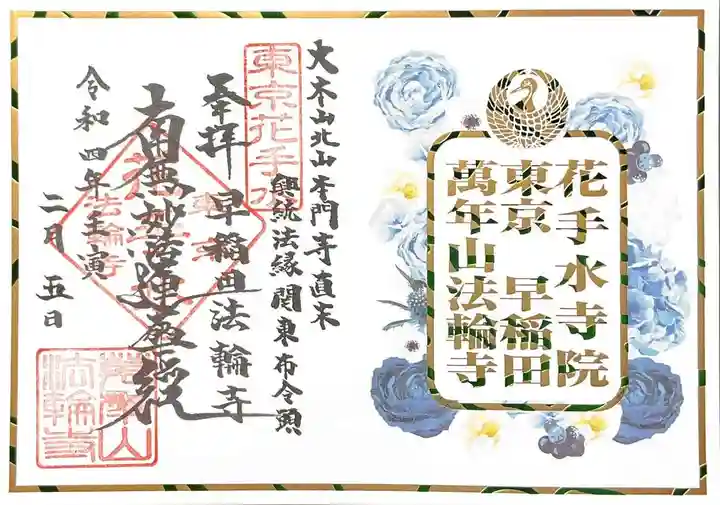 花手水寺院
東京 早稲田
萬年山法輪寺
大本山北山本門寺直末
興統法縁関東布令頭
東京花手水
奉拝 早稲田法輪寺
南無妙法蓮華経
令和四年壬寅
二月 五日
萬年山
法輪寺